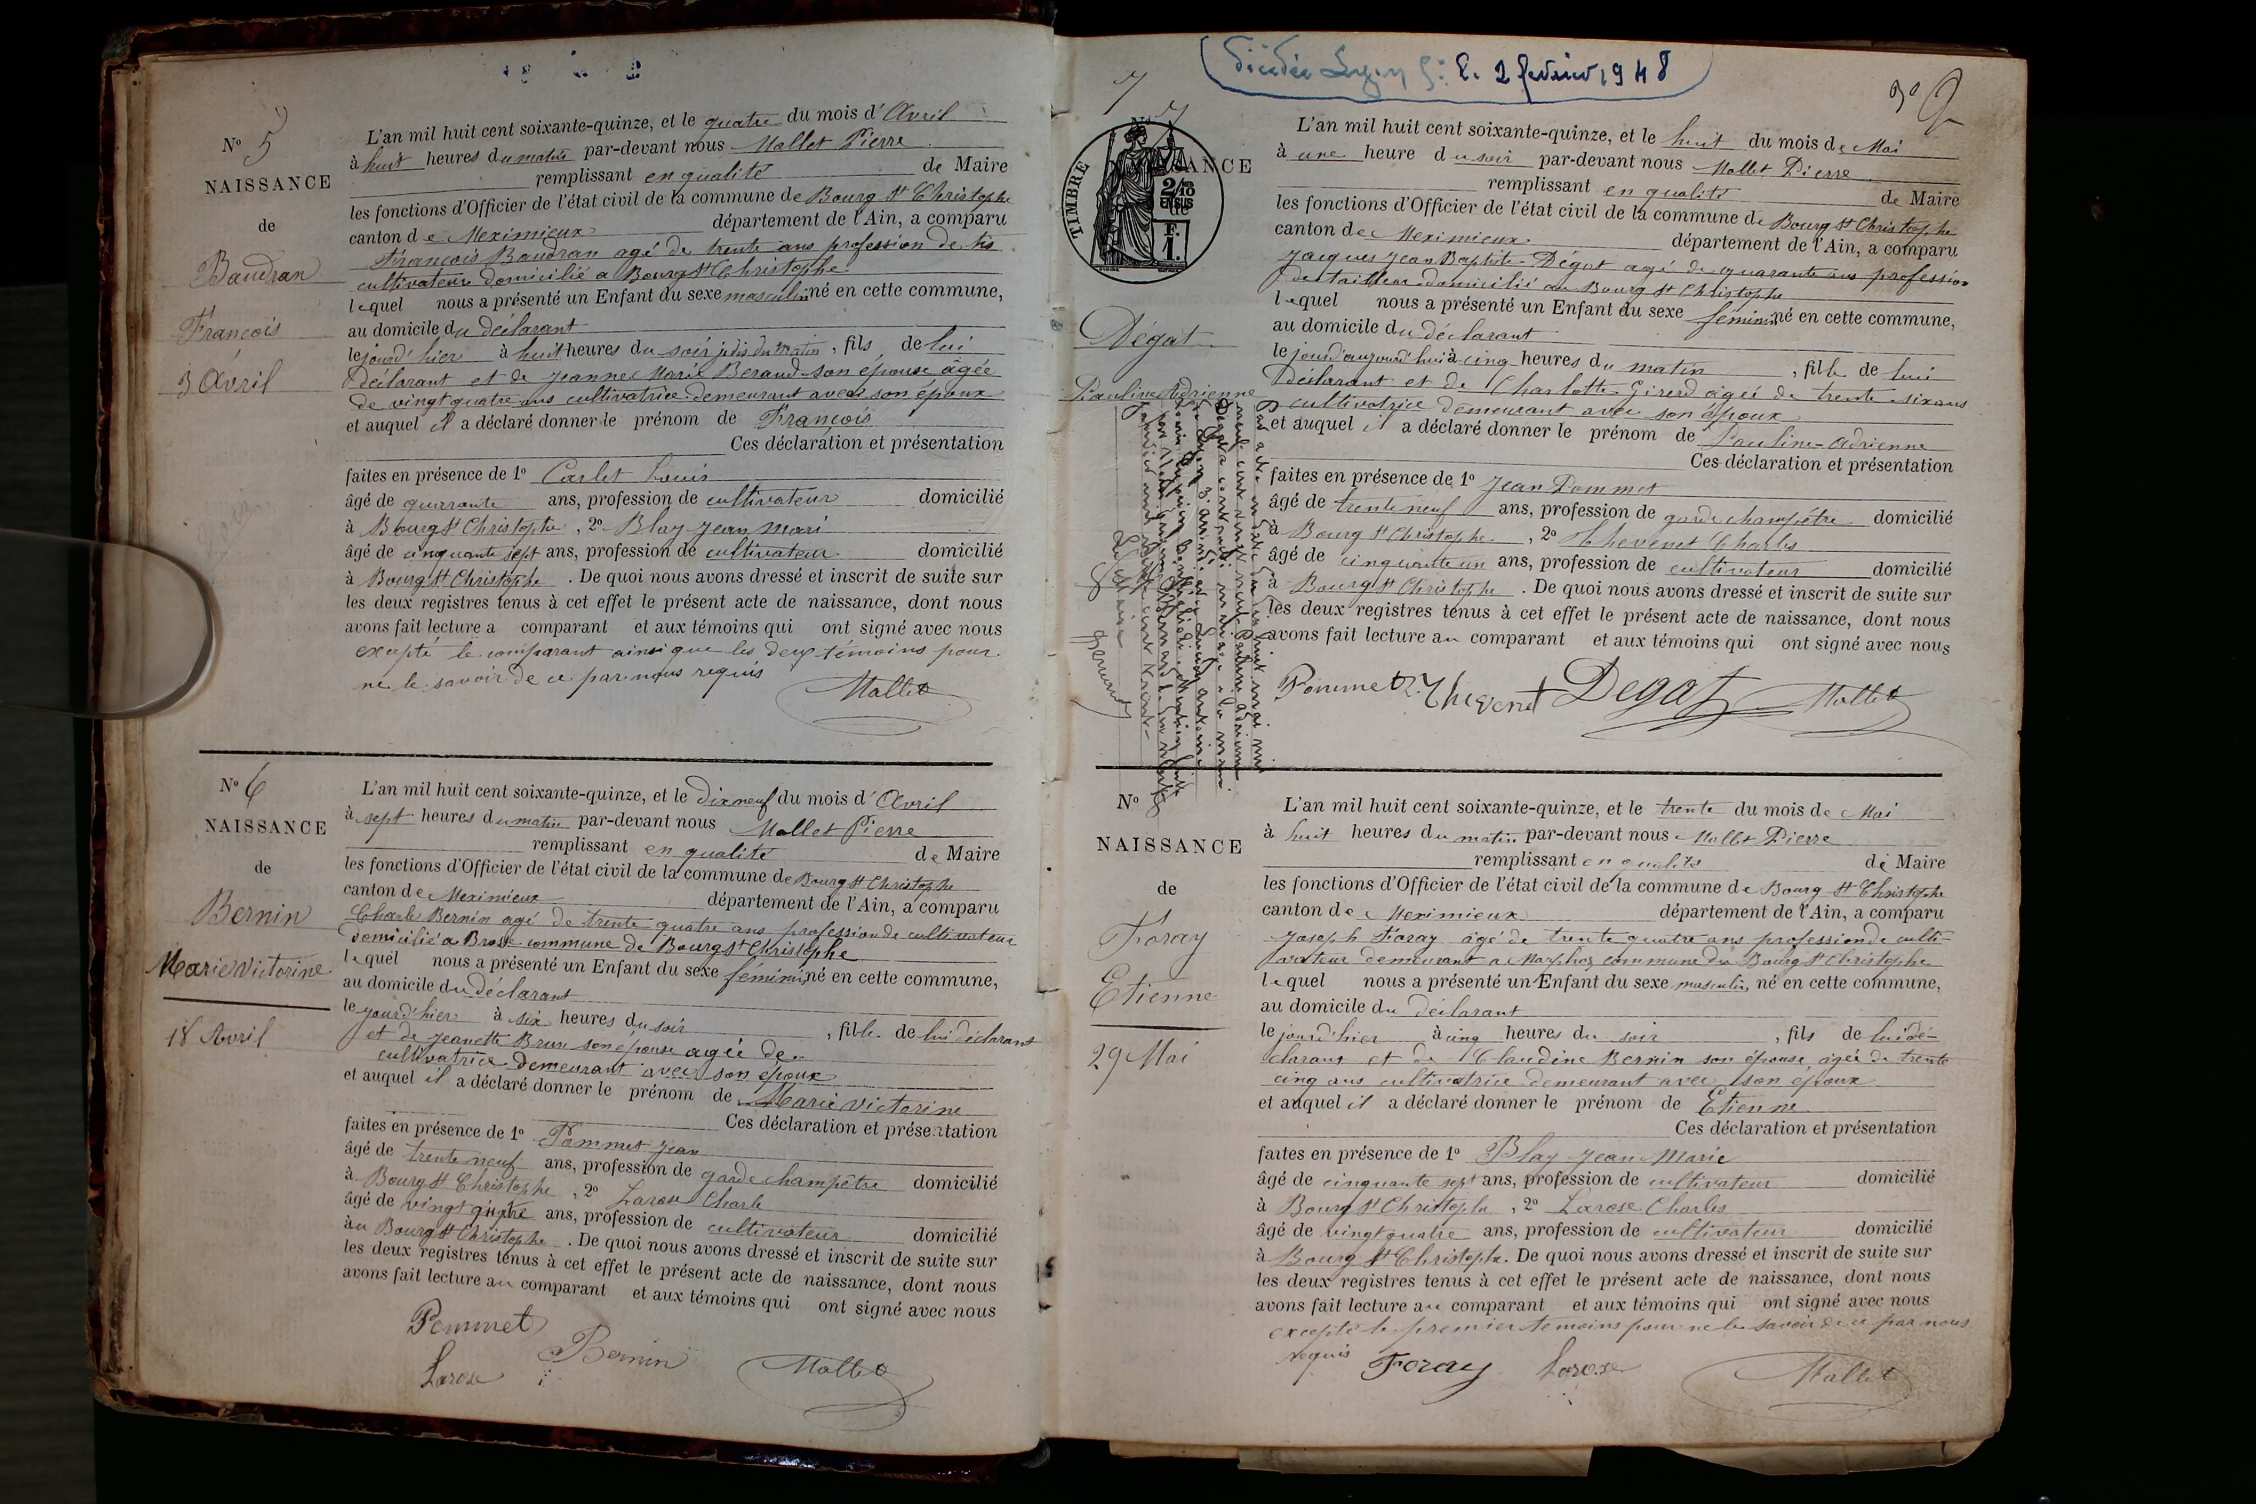 N° 5
NAISSANCE
de
Baudran
François
3 Avril
L'an mil huit cent soixante-quinze, et le quatre du mois d'Avril
à huit heures du matin par-devant nous Mallet Pierre
remplissant en qualité de Maire
les fonctions d'Officier de l'état civil de la commune de Bourg St Christophe
canton de Meximieux département de l'Ain, a comparu
François Baudran agé de trente ans profession de
cultivateur domicilié a Bourg St Christophe
lequel nous a présenté un Enfant du sexe masculin né en cette commune,
au domicile du déclarant
le jourd'hier à huit heures du soir , fils de lui
Déclarant et de Jeanne Marie Beraud son épouse âgée
de vingt quatre ans cultivatrice demeurant avec son époux
et auquel il a déclaré donner le prénom de François
Ces déclaration et présentation
faites en présence de 1° Carlet Louis
âgé de quarrante ans, profession de cultivateur domicilié
à Bourg St Christophe , 2° Blay Jean Mari
âgé de cinquante sept ans, profession de cultivateur domicilié
à Bourg St Christophe . De quoi nous avons dressé et inscrit de suite sur
les deux registres tenus à cet effet le présent acte de naissance, dont nous
avons fait lecture a comparant et aux témoins qui ont signé avec nous
excepté le comparant ainsi que les deux témoins pour
ne le savoir de ce par nous requis
Mallet
N° 6
NAISSANCE
de
Bernin
Marie Victorine
18 Avril
L'an mil huit cent soixante-quinze, et le dix neuf du mois d'Avril
à sept heures du matin par-devant nous Mallet Pierre
remplissant en qualité de Maire
les fonctions d'Officier de l'état civil de la commune de Bourg St Christophe
canton de Meximieux département de l'Ain, a comparu
Charles Bernin agé de trente quatre ans profession de cultivateur
domicilié a commune de Bourg St Christophe
lequel nous a présenté un Enfant du sexe féminin né en cette commune,
au domicile du déclarant
le jourd'hier à six heures du soir , fille de lui déclarant
et de Jeanette Brun son épouse agée de
cultivatrice demeurant avec son époux
et auquel il a déclaré donner le prénom de Marie Victorine
Ces déclaration et présentation
faites en présence de 1° Pommet Jean
âgé de trente neuf ans, profession de garde champêtre domicilié
à Bourg St Christophe , 2° Larose Charle
âgé de vingt quatre ans, profession de cultivateur domicilié
au Bourg St Christophe . De quoi nous avons dressé et inscrit de suite sur
les deux registres tenus à cet effet le présent acte de naissance, dont nous
avons fait lecture au comparant et aux témoins qui ont signé avec nous
Pommet
Bernin
Larose
Mallet
décédée Lyon le 2 février 1948
7
N° 7
NAISSANCE
de
TIMBRE
Dégat
Pauline Adrienne
L'an mil huit cent soixante-quinze, et le huit du mois de Mai
à une heure du soir par-devant nous Mallet Pierre
remplissant en qualité de Maire
les fonctions d'Officier de l'état civil de la commune de Bourg St Christophe
canton de Meximieux département de l'Ain, a comparu
Jacques Jean Baptiste Dégat agé de quarante ans profession
de tailleur domicilié au Bourg St Christophe
lequel nous a présenté un Enfant du sexe féminin né en cette commune,
au domicile du déclarant
le jourd'aujourd'hui à cinq heures du matin , fille de lui
Déclarant et de Charlotte Girerd agée de trente six ans
cultivatrice demeurant avec son époux
et auquel il a déclaré donner le prénom de Pauline-Adrienne
Ces déclaration et présentation
faites en présence de 1° Jean Pommet
âgé de trente neuf ans, profession de garde champêtre domicilié
à Bourg St Christophe , 2° Thevenet Charles
âgé de cinquante un ans, profession de cultivateur domicilié
à Bourg St Christophe . De quoi nous avons dressé et inscrit de suite sur
les deux registres tenus à cet effet le présent acte de naissance, dont nous
avons fait lecture au comparant et aux témoins qui ont signé avec nous
Pommet Thevenet Degat Mallet
N° 8
NAISSANCE
de
Foray
Etienne
29 Mai
L'an mil huit cent soixante-quinze, et le trente du mois de Mai
à huit heures du matin par-devant nous Mallet Pierre
remplissant en qualité de Maire
les fonctions d'Officier de l'état civil de la commune de Bourg St Christophe
canton de Meximieux département de l'Ain, a comparu
Joseph Foray âgé de trente quatre ans profession de culti-
vateur demeurant a commune du Bourg St Christophe
lequel nous a présenté un Enfant du sexe masculin né en cette commune,
au domicile du déclarant
le jourd'hier à cinq heures du soir , fils de lui dé-
clarant et de Claudine Bernin son épouse agée de trente
cinq ans cultivatrice demeurant avec son époux
et auquel il a déclaré donner le prénom de Etienne
Ces déclaration et présentation
faites en présence de 1° Blay Jean Marie
âgé de cinquante sept ans, profession de cultivateur domicilié
à Bourg St Christophe , 2° Larose Charles
âgé de vingt quatre ans, profession de cultivateur domicilié
à Bourg St Christophe. De quoi nous avons dressé et inscrit de suite sur
les deux registres tenus à cet effet le présent acte de naissance, dont nous
avons fait lecture au comparant et aux témoins qui ont signé avec nous
excepté le premier témoins pour ne le savoir de ce par nous
requis
Foray Larose Mallet